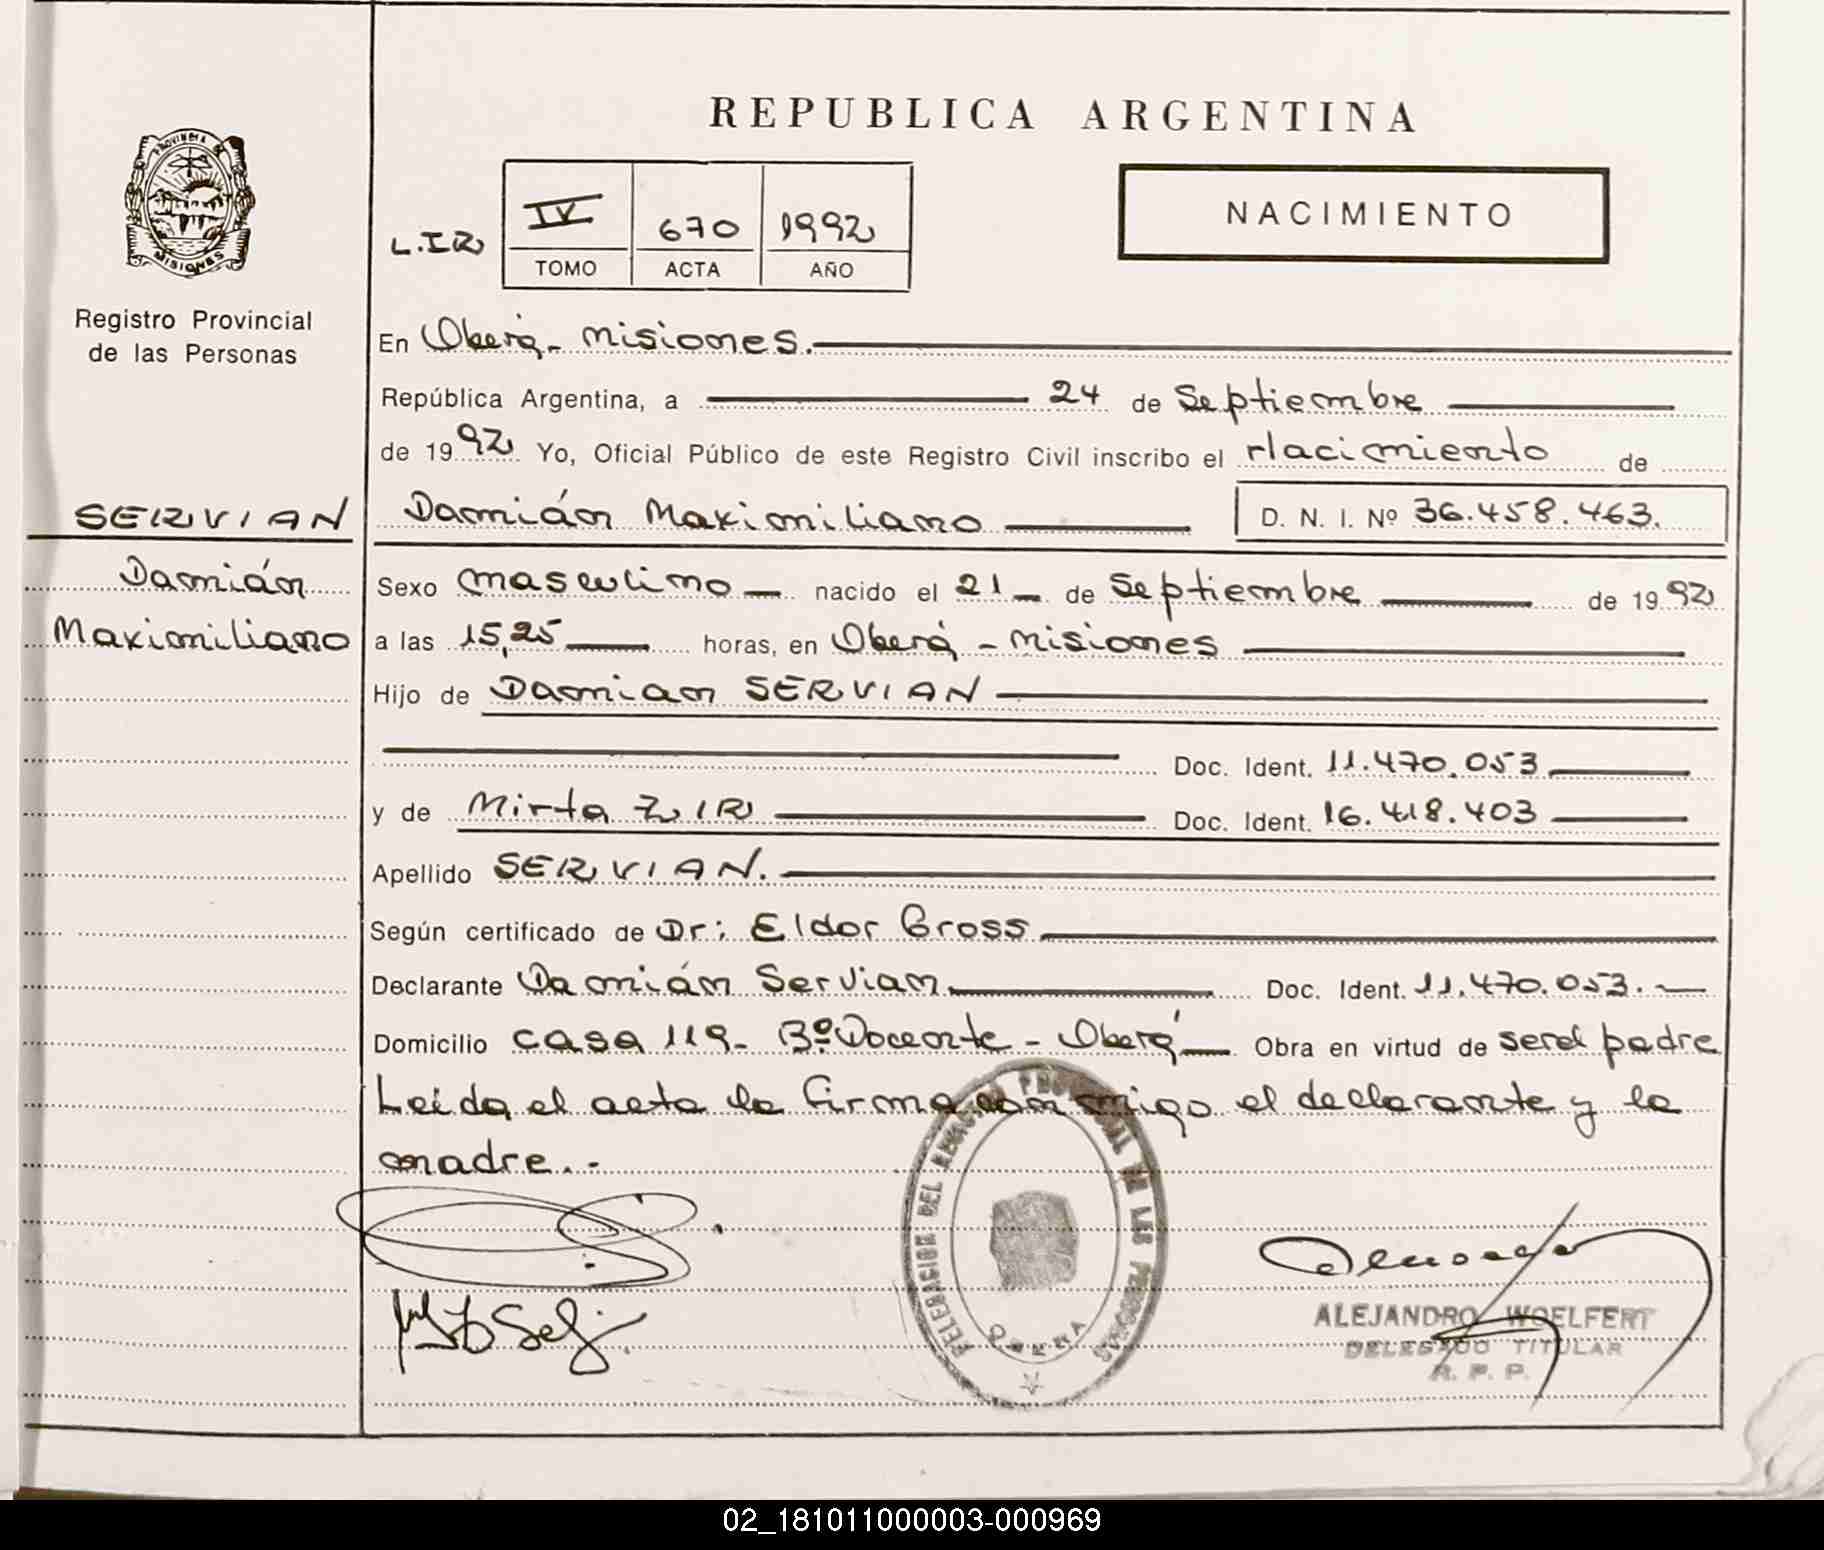 REPUBLICA ARGENTINA
PROVINCIA DE
MISIONES
Registro Provincial
de las Personas
L.IR
IV 670 1992
TOMO ACTA AÑO
NACIMIENTO
En Oberá - Misiones.
República Argentina, a 24 de Septiembre
de 1992 Yo, Oficial Público de este Registro Civil inscribo el Nacimiento de
SERVIAN
Damián Maximiliano D. N. I. Nº 36.458.463.
Damián
Maximiliano
Sexo masculino nacido el 21 de Septiembre de 1992
a las 15,25 horas, en Oberá - Misiones
Hijo de Damian SERVIAN
Doc. Ident. 11.470.053
y de Mirta ZIR Doc. Ident. 16.418.403
Apellido SERVIAN.
Según certificado de Dr: Eldor Gross
Declarante Damián Servian Doc. Ident. 11.470.053.
Domicilio casa 119 - Bº Docente - Oberá Obra en virtud de ser el padre
Leida el acta la firma conmigo el declarante y la
madre. -
DELEGACION DEL REGISTRO PROVINCIAL DE LAS PERSONAS
OBERA
ALEJANDRO WOELFERT
DELEGADO TITULAR
R. P. P.
02_181011000003-000969